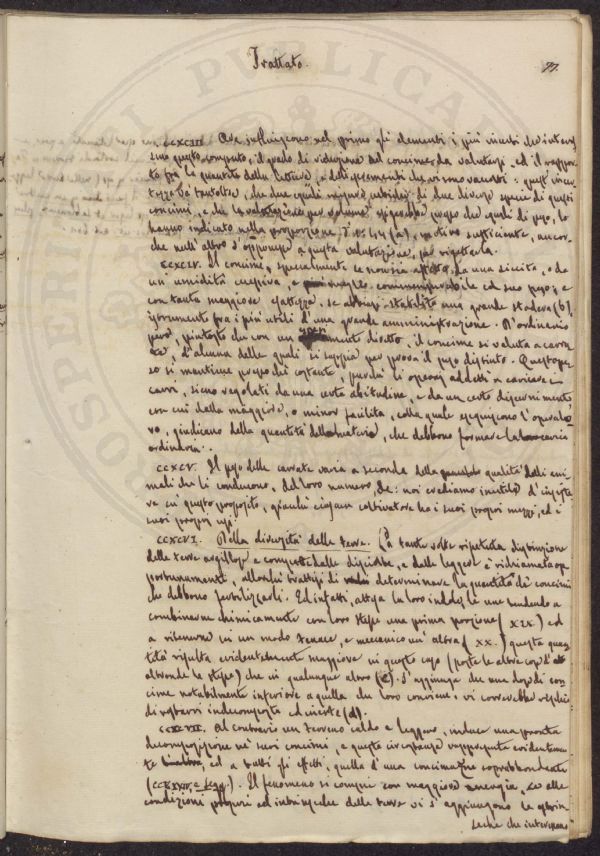 Trattato.
77.
CCXCIII. Ove influiscono nel primo gli elementi i più incerti ed interes
simo questo computo, il grado di riduzione del concime da valutarsi, ed il rappor
to fra la quantità della lettiera, e degli escrementi
tezza fa talvolta, che due eguali misure di due diverse specie di questi
concimi, e che la valutazione per volume
hanno indicato nella proporzione motivo sufficiente, ancor
che null'altro s'opponesse a questa valutazione, per rigettarla.
CCXCIV. Il concime, specialmente se non sia affetto da una siccità, o da
un umidità eccessiva, è meglio commensurabile col suo peso; e
con tanta maggiore esattezza, se abbiasi stabilita una grande stadera (b),
istrumento fra i più utili d'una grande amministrazione. D'ordinario
però, piuttosto che con un diretto, il concime si valuta a carra
te, d'alcuna delle quali si saggia per prova il peso distinto. Questo pe
so si mantiene presso che costante, purchè gli operaj addetti a caricare i
carri, sieno regolati da una certa abitudine, e da un certo discernimento
con cui dalla maggiore, o minor facilità, colla quale eseguiscono l'operazio
ne, giudicano della quantità della materia, che debbono formare la loro carica
ordinaria.
CCXCV. Il peso delle carrate varia a seconda della qualità delli ani
mali che li conducono, del loro numero, &c: noi crediamo inutile d'insiste
re su questo proposito, giacchè ciascun coltivatore ha i suoi proprj mezzi, ed i
suoi proprj usi.
CCXCVI. Della diversità delle terre. La tante volte ripetuta distinzione
delle terre argillose e compatte dalle disciolte, e dalle leggere è richiamata op
portunamente, allorchè trattisi di determinare la quantità de' concimi
che debbono fertilizzarle. Ed infatti, attesa la loro indole, le une tendendo a
combinarne chimicamente con loro stesse una prima porzione (XIX.) ed
a ritenerne in un modo tenace, e meccanico un'altra (XX.) questa quan
tità risulta evidentemente maggiore in questo caso (poste le altre cose d'al
altronde le stesse) che in qualunque altro (c). S'aggiunga che una dose di con
cime notabilmente inferiore a quella che loro conviene, vi correrebbe rischio
di restarvi indecomposta ed inerte (d).
CCXCVII. Al contrario un terreno caldo e leggero, induce una pronta
decomposizione ne' suoi concimi, e questa circostanza rappresenta evidentemen
te, ed a tutti gli effetti, quella d'una concimazione soprabbondante
Il fenomeno si compie con maggiore energia, se alle
condizioni proprie ed intrinseche delle terre vi s'aggiungono le estrin
seche che intervengono